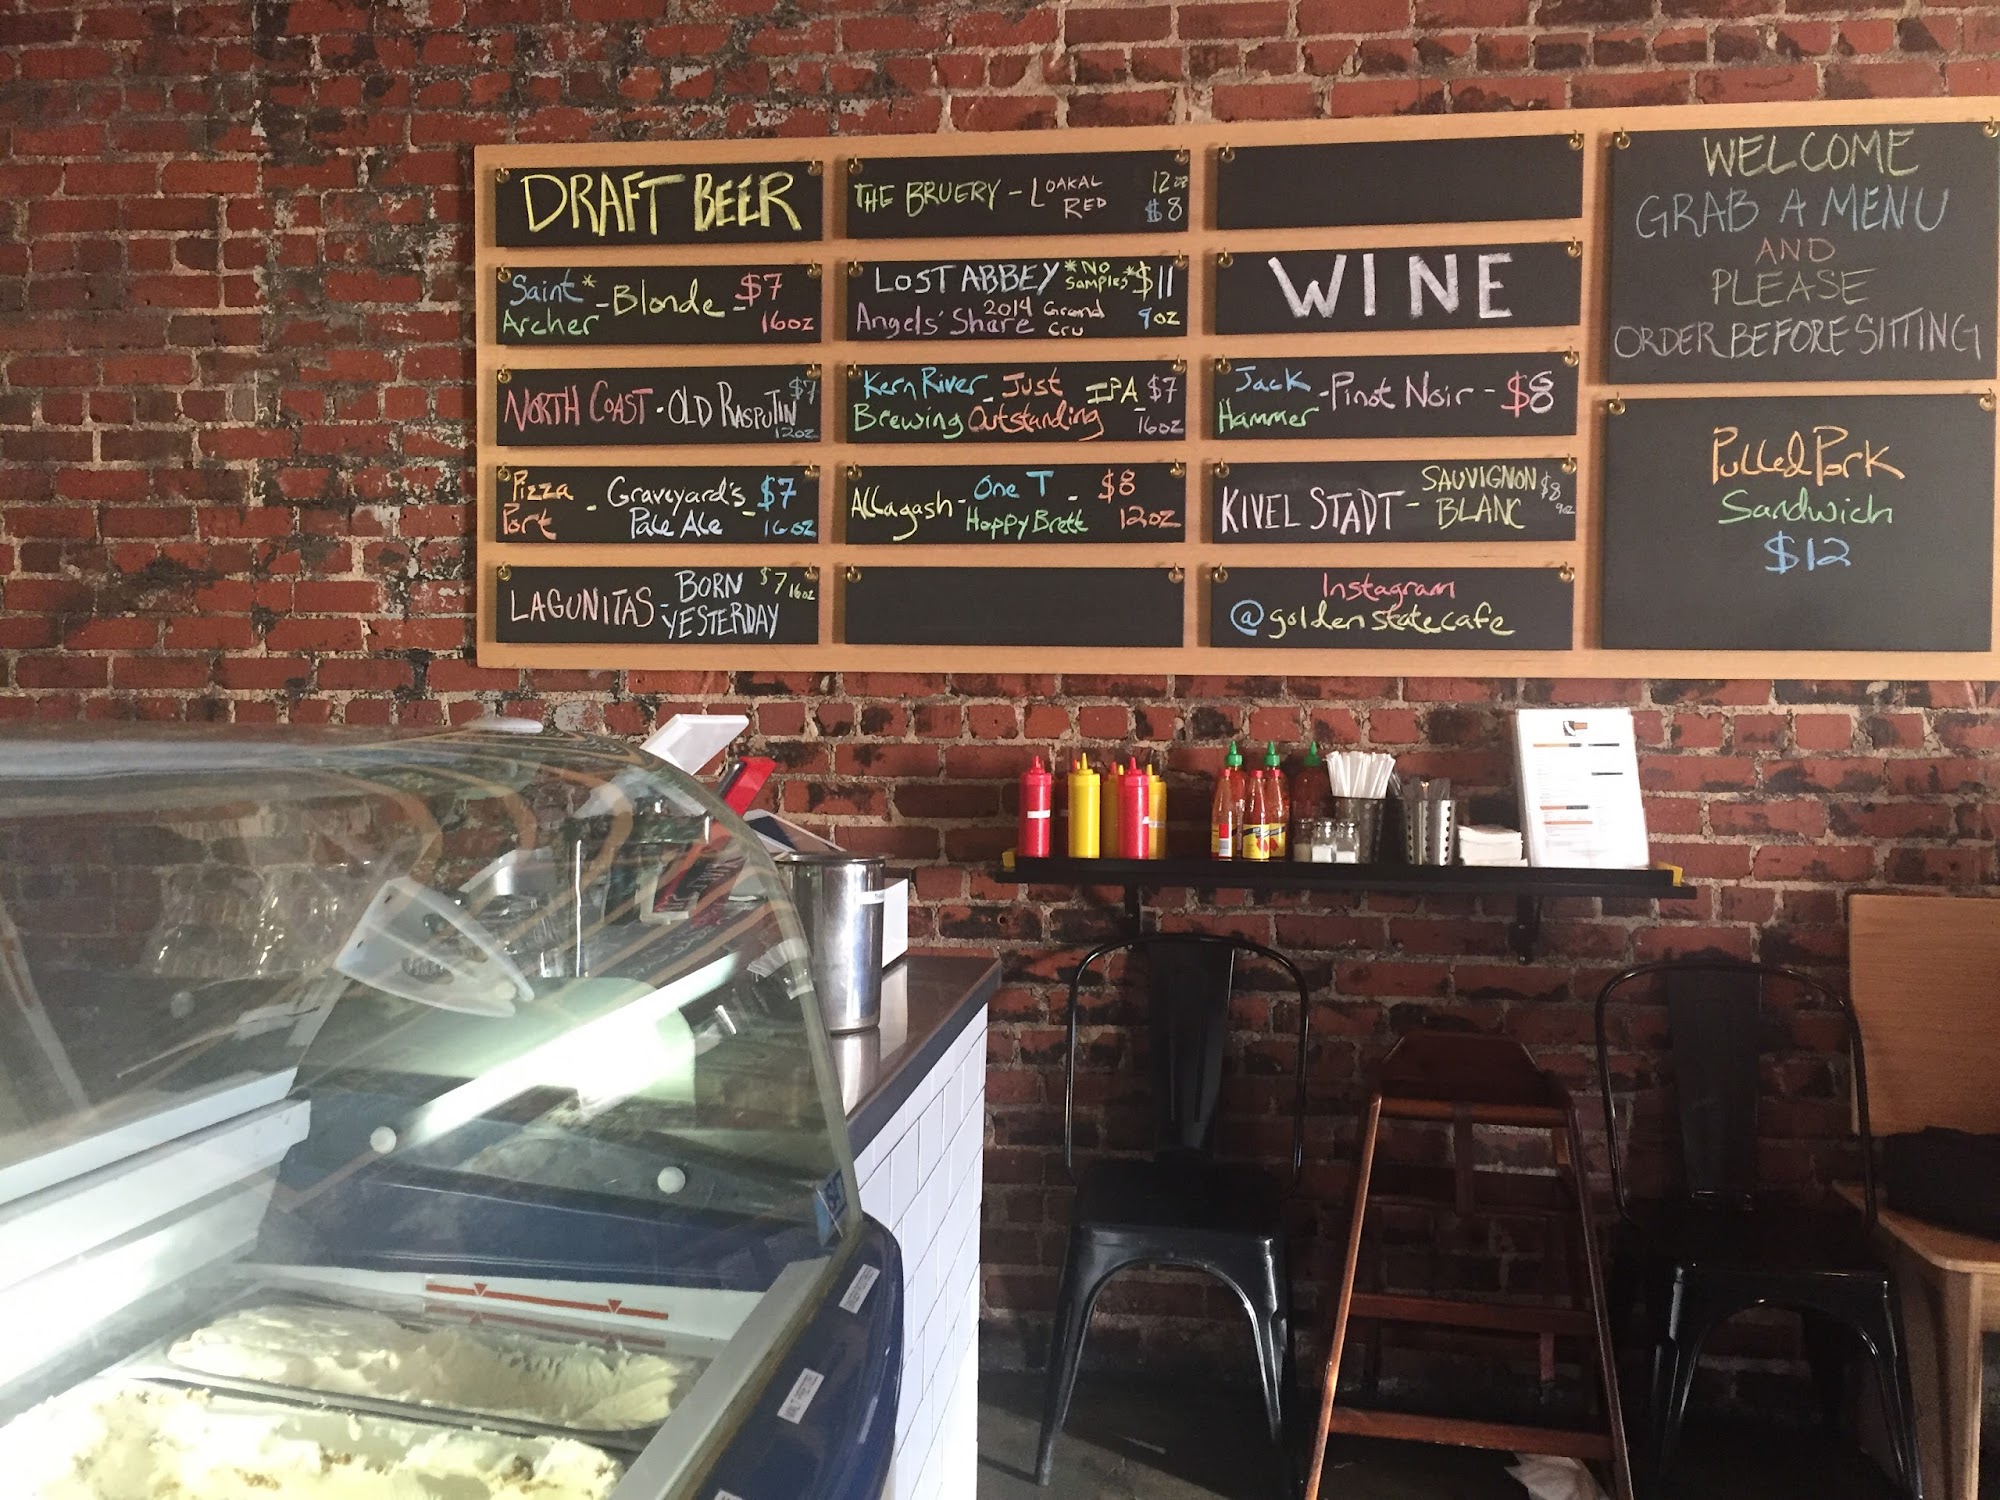 DRAFT BEER
Saint* Archer - Blonde - $7 16oz
NORTH COAST - OLD RASPUTIN $7 12oz
Pizza Port - Graveyard's Pale Ale - $7 16oz
LAGUNITAS - BORN YESTERDAY $7 16oz
THE BRUERY - LOAKAL RED 12oz $8
LOST ABBEY *No Samples* $11
Angels' Share 2014 Grand Cru 9oz
Kern River Brewing - Just Outstanding IPA - $7 16oz
Allagash - One T Hoppy Brett - $8 12oz
WINE
Jack Hammer - Pinot Noir - $8
KIVELSTADT - SAUVIGNON BLANC $8 9oz
Instagram
@goldenstatecafe
WELCOME
GRAB A MENU
AND
PLEASE
ORDER BEFORE SITTING
Pulled Pork
Sandwich
$12